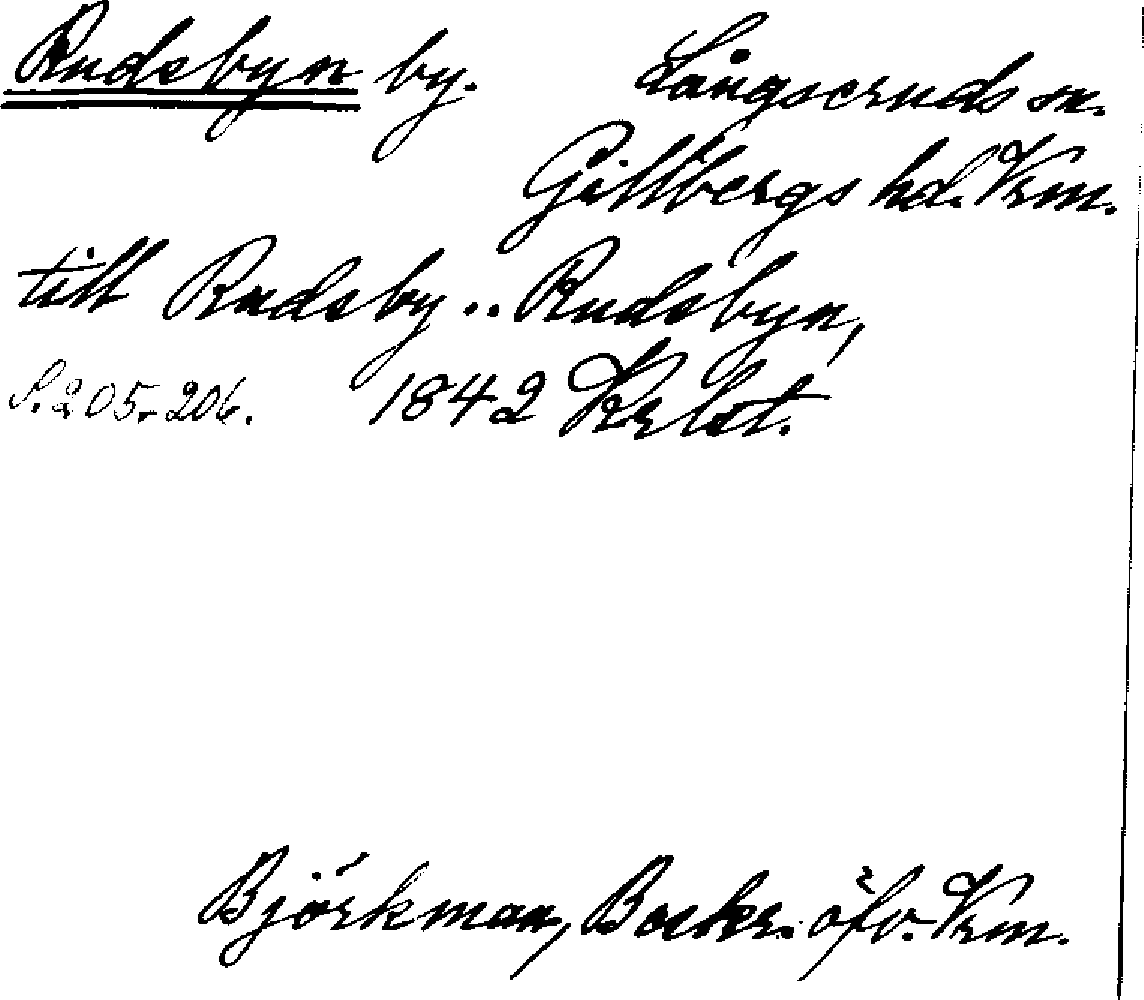 Rudsbyn by. Långseruds sn.
Gillbergs hd. Vrm.
till Rudsby .. Rudsbyn,
S. 205-206. 1842
Björkman, Beskr. öfv. Vrm.